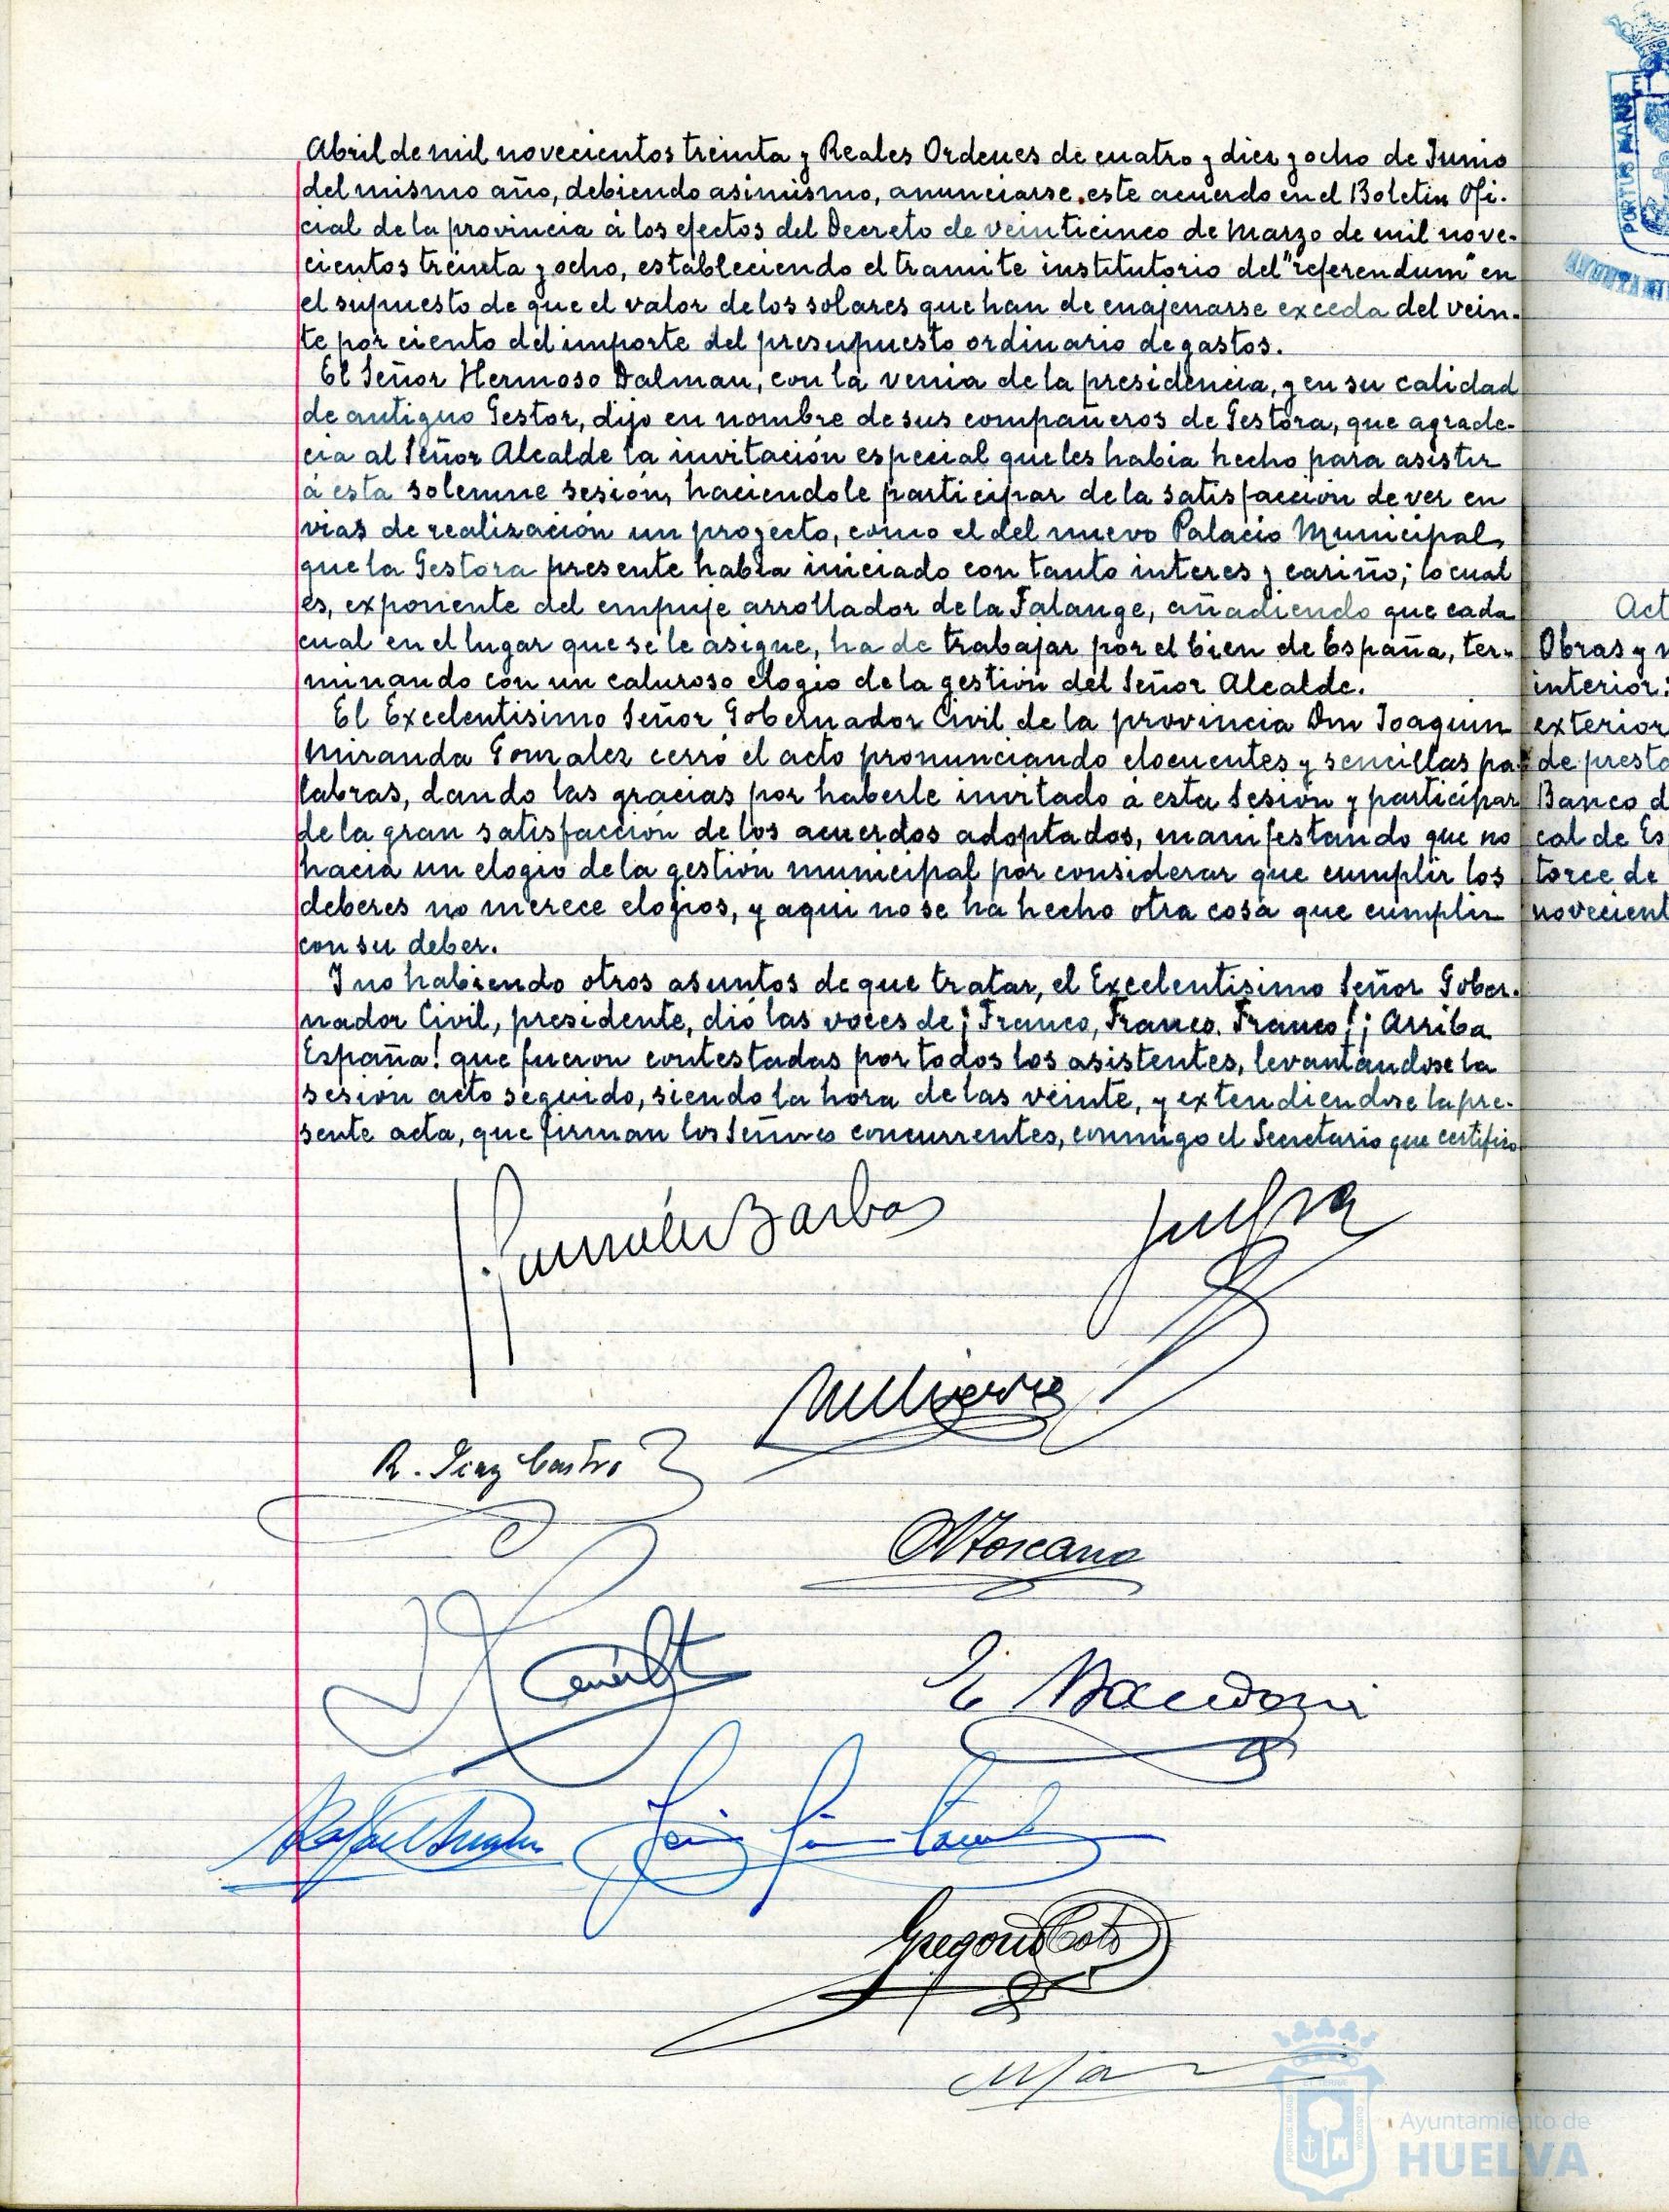 Abril de mil novecientos treinta y Reales Ordenes de cuatro y diez y ocho de Junio
del mismo año, debiendo asimismo, anunciarse este acuerdo en el Boletin Ofi-
cial de la provincia á los efectos del Decreto de veinticinco de Marzo de mil nove-
cientos treinta y ocho, estableciendo el tramite institutorio del "referendum" en
el supuesto de que el valor de los solares que han de enajenarse exceda del vein-
te por ciento del importe del presupuesto ordinario de gastos.
El Señor Hermoso Dalmau, con la venia de la presidencia, y en su calidad
de antiguo Gestor, dijo en nombre de sus compañeros de Gestora, que agrade-
cia al Señor Alcalde la invitación especial que les habia hecho para asistir
á esta solemne sesión, haciendole participar de la satisfacción de ver en
vias de realización un proyecto, como el del nuevo Palacio Municipal,
que la Gestora presente habia iniciado con tanto interes y cariño; lo cual
es, exponente del empuje arrollador de la Falange, añadiendo que cada
cual en el lugar que se le asigne, ha de trabajar por el bien de España, ter-
minando con un caluroso elogio de la gestión del Señor Alcalde.
El Excelentisimo Señor Gobernador Civil de la provincia Don Joaquin
Miranda Gonzalez cerró el acto pronunciando elocuentes y sencillas pa-
labras, dando las gracias por haberle invitado á esta sesión y participar
de la gran satisfacción de los acuerdos adoptados, manifestando que no
hacia un elogio de la gestión municipal por considerar que cumplir los
deberes no merece elogios, y aqui no se ha hecho otra cosa que cumplir
con su deber.
Y no habiendo otros asuntos de que tratar, el Excelentisimo Señor Gober-
nador Civil, presidente, dió las voces de ¡Franco, Franco, Franco! ¡Arriba
España! que fueron contestadas por todos los asistentes, levantándose la
sesión acto seguido, siendo la hora de las veinte, y extendiendose la pre-
sente acta, que firman los Señores concurrentes, conmigo el Secretario que certifico
González Barba
R. Diaz Castro
Toscano
Gregorio Coto
Act
Obras y
interior:
exterior
de presta
Banco d
cal de Es
torce de
novecient
PORTUS MARIS
Ayuntamiento de
HUELVA